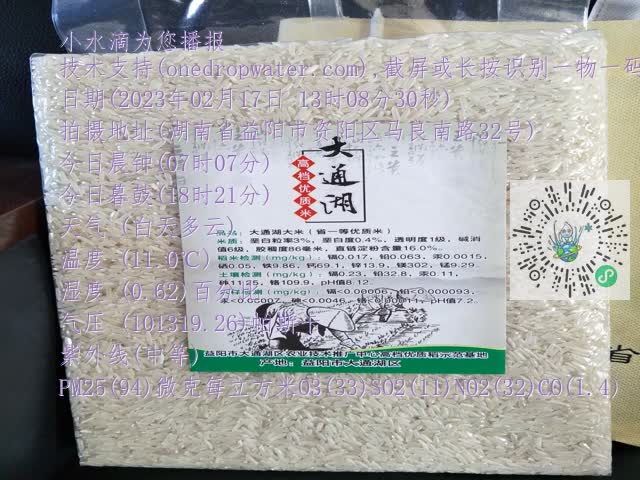 小水滴为您播报
技术支持(onedropwater.com),截屏或长按识别一物一码
日期(2023年02月17日 13时08分30秒)
拍摄地址(湖南省益阳市资阳区马良南路32号)
今日晨钟(07时07分)
今日暮鼓(18时21分)
天气 (白天多云)
温度 (11.0℃)
湿度 (0.62)百分
气压 (101319.26)帕斯卡
紫外线(中等)
PM25(94)微克每立方米O3(33)SO2(11)NO2(32)CO(1.4)
大通湖
高档优质米
品名: 大通湖大米（省一等优质米）
米质: 垩白粒率3%, 垩白度0.4%, 透明度1级, 碱消
值6级, 胶稠度86毫米, 直链淀粉含量16.0%。
稻米检测(mg/kg): 镉0.017, 铅0.063, 汞0.0015,
硒0.05, 铁9.86, 钙69.1, 锌13.9, 镁302, 锰9.29.
土壤检测(mg/kg): 镉0.23, 铅32.8, 汞0.11,
砷11.25, 铬109.9, pH值8.12.
镉<0.00006, 铅<0.000093,
汞<0.00007, 砷<0.0046, 铬<0.00011, pH值7.2.
益阳市大通湖区农业技术推广中心高档优质稻示范基地
产地: 益阳市大通湖区
省